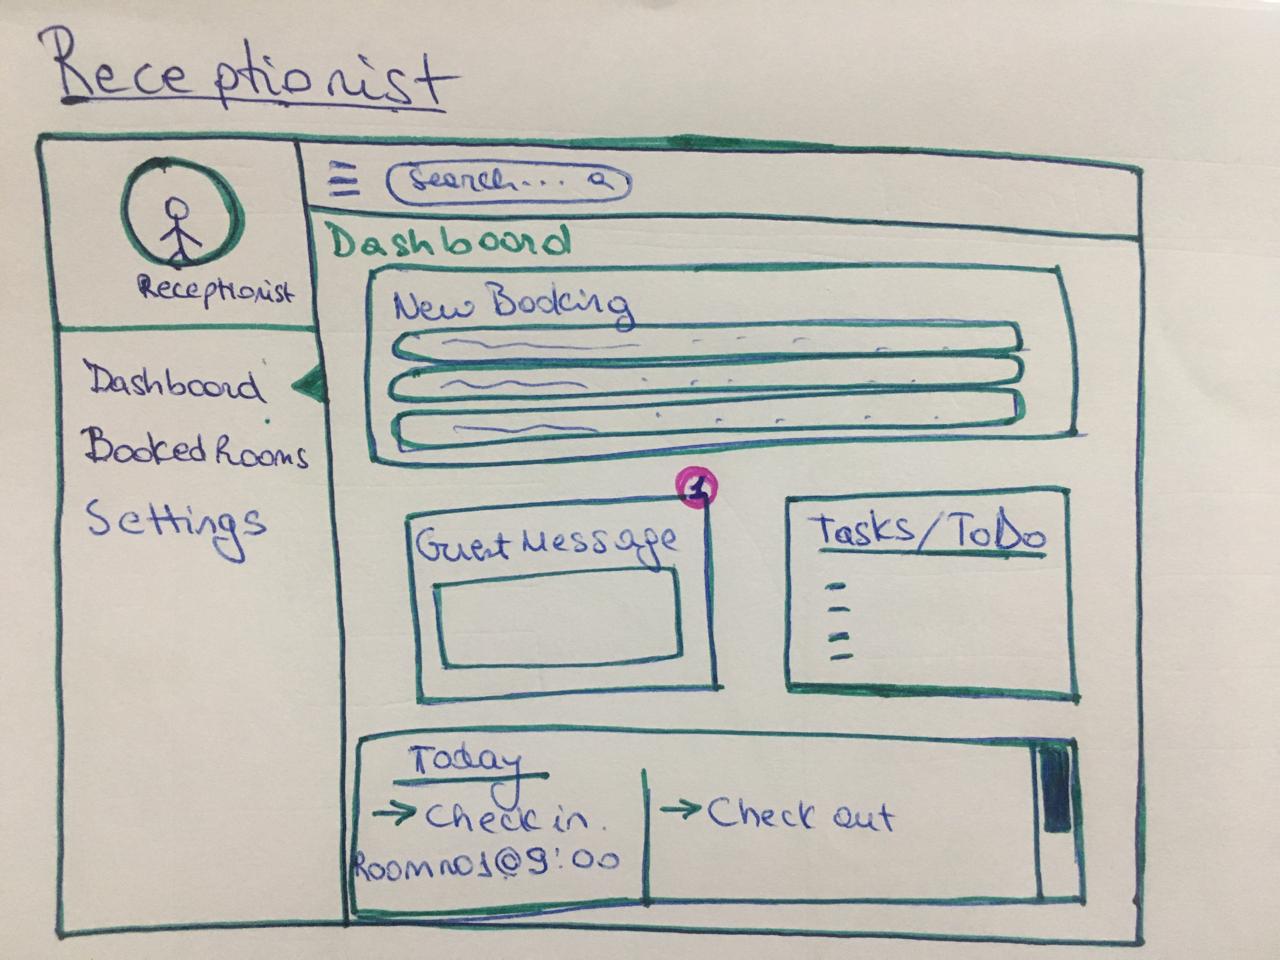 Receptionist
Search...
Receptionist
Dashboard
Booked Rooms
Settings
Dashboard
New Booking
1
Guest Message
Tasks/ToDo
Today
→ Check in.
Room no1@9:00
→ Check out